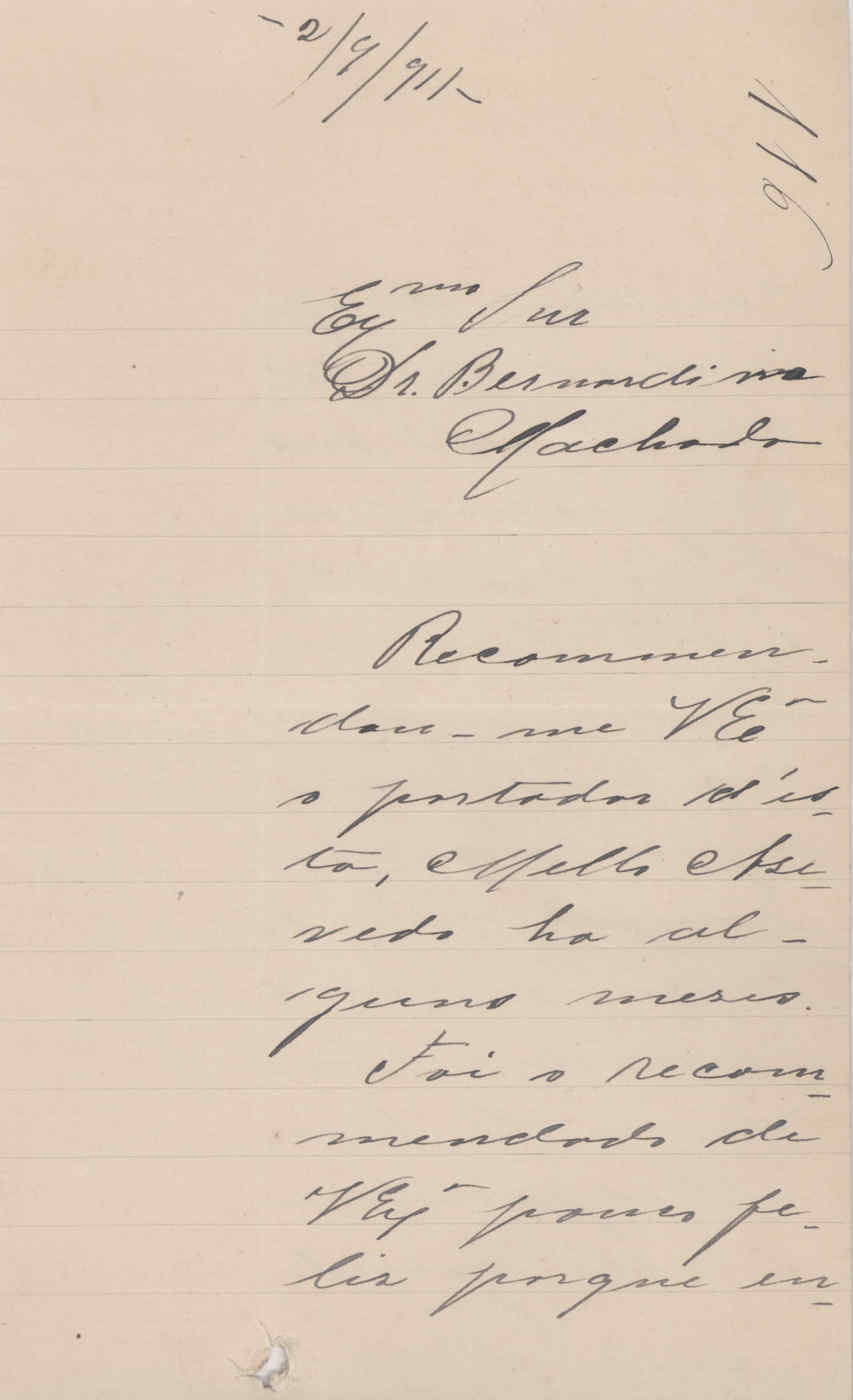 2/9/911
116
Exmo Snr
Dr. Bernardino
Machado
Recommen-
dou-me VExa
o portador d'es-
ta, Mello Ase-
vedo ha al-
guns meses.
Foi o recom-
mendado de
VExa pouco fe-
liz porque en-